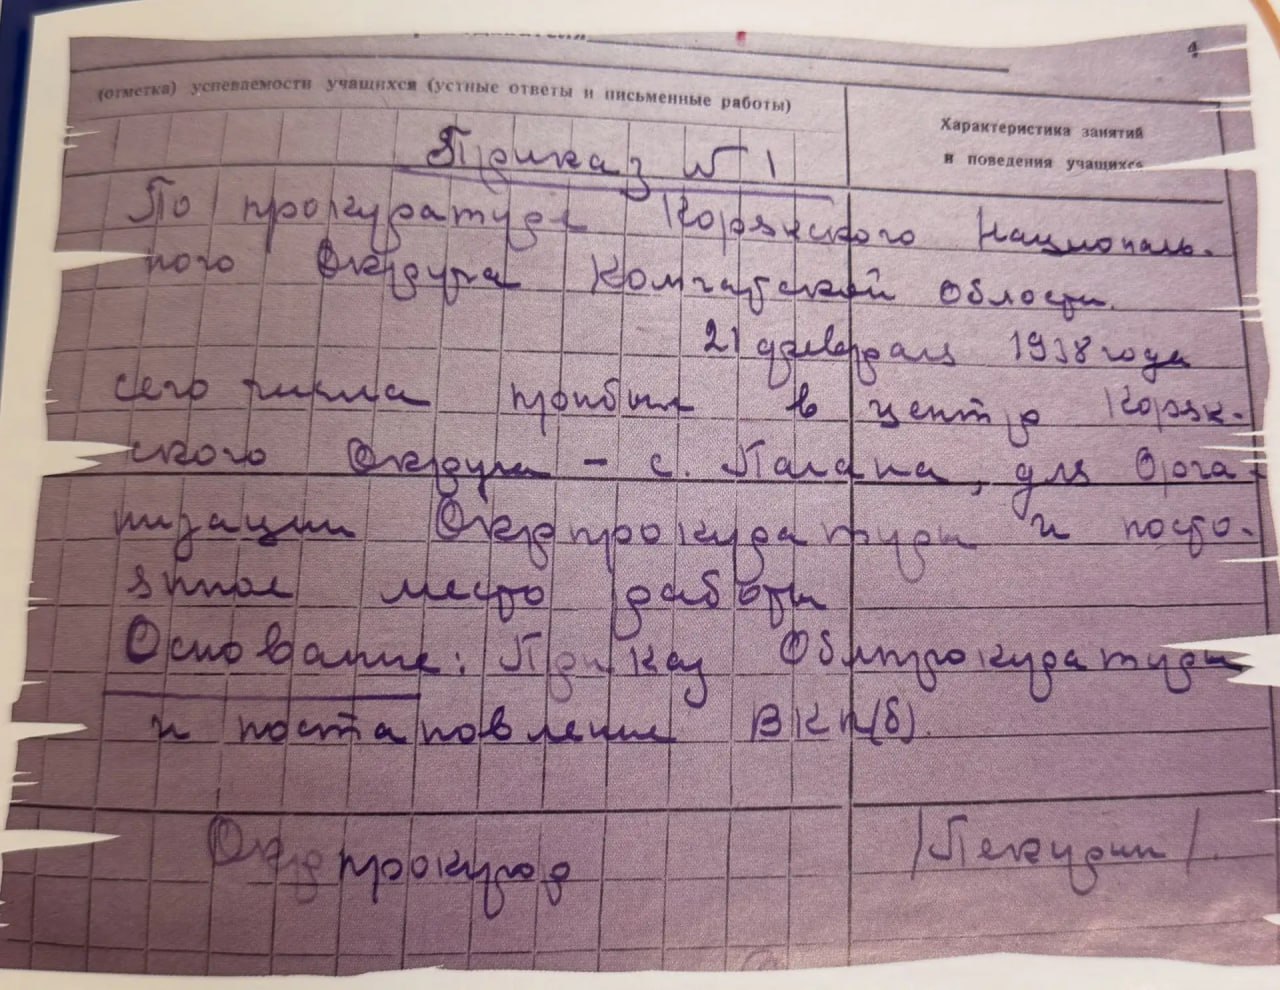 4
(отметка) успеваемости учащихся (устные ответы и письменные работы)
Характеристика занятий
и поведения учащихся
Приказ № 1
По прокуратуре Корякского Националь-
ного Округа Камчатской Области.
21 февраля 1938 года
сего числа прибыл в центр Коряк-
ского Округа – с. Палана, для Орга-
низации Окрпрокуратуры и посто-
янное место работы
Основание: Приказ Облпрокуратуры
и постановление ВКП(б).
Окрпрокурор /Пекурин/.